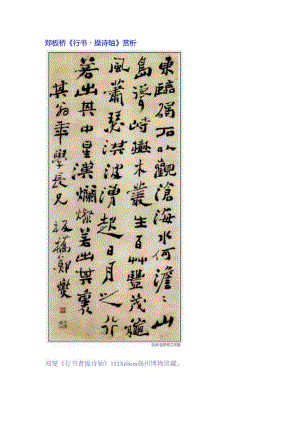 郑板桥《行书·操诗轴》赏析
東臨碣石以觀滄海水何澹〻山
島竦峙樹木叢生百草豐茂穐
風蕭瑟洪波湧起日月之行
若出其中星漢爛燦若出其裏
其翁年學長兄 板橋鄭燮
郑燮《行书曹操诗轴》152X68cm扬州博物馆藏。